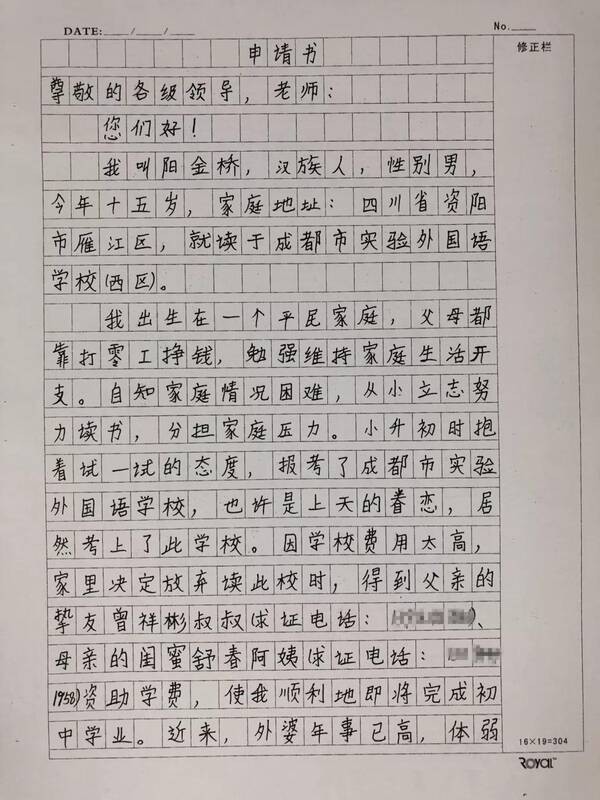 DATE: / /
No.
修正栏
申请书
尊敬的各级领导，老师：
您们好！
我叫阳金桥，汉族人，性别男，
今年十五岁，家庭地址：四川省资阳
市雁江区，就读于成都市实验外国语
学校(西区)。
我出生在一个平民家庭，父母都
靠打零工挣钱，勉强维持家庭生活开
支。自知家庭情况困难，从小立志努
力读书，分担家庭压力。小升初时抱
着试一试的态度，报考了成都市实验
外国语学校，也许是上天的眷恋，居
然考上了此学校。因学校费用太高，
家里决定放弃读此校时，得到父亲的
挚友曾祥彬叔叔(求证电话：)、
母亲的闺蜜舒春阿姨(求证电话：
1958)资助学费，使我顺利地即将完成初
中学业。近来，外婆年事已高，体弱
16×19=304
ROYAL